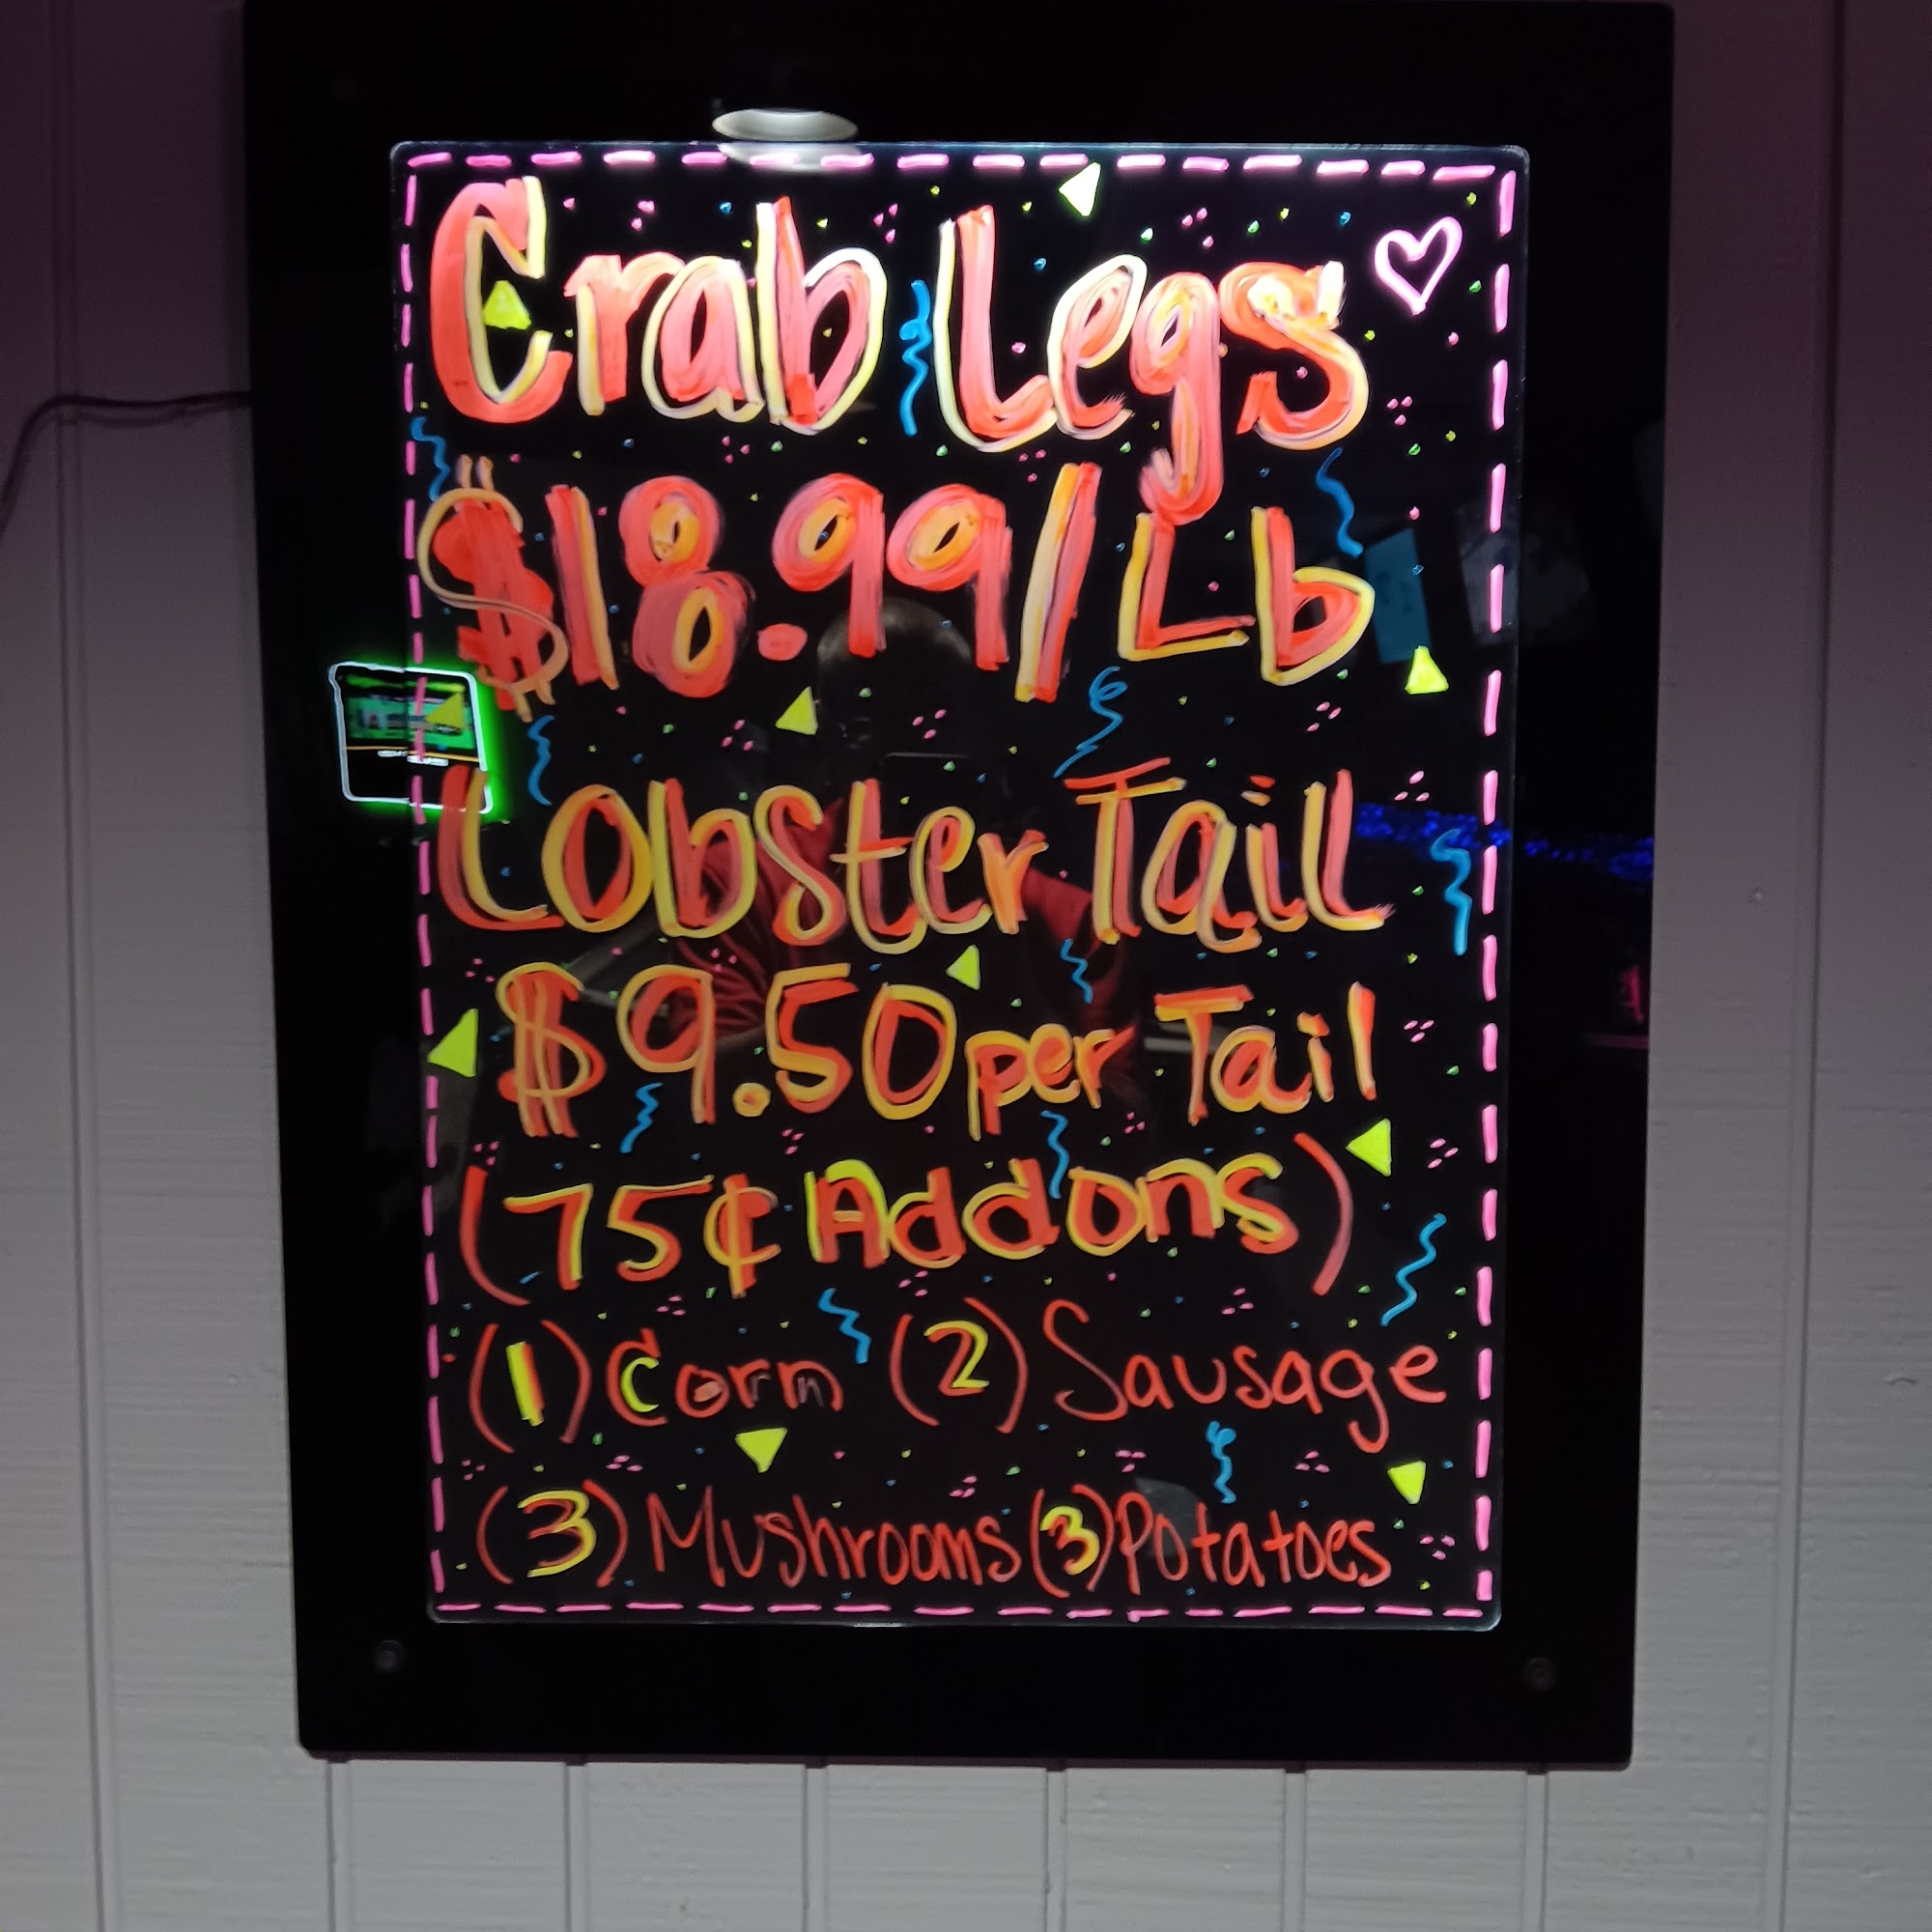 Crab Legs
$18.99/Lb
Lobster Tail
$9.50 per Tail
(75¢ Addons)
(1) Corn (2) Sausage
(3) Mushrooms (3) Potatoes